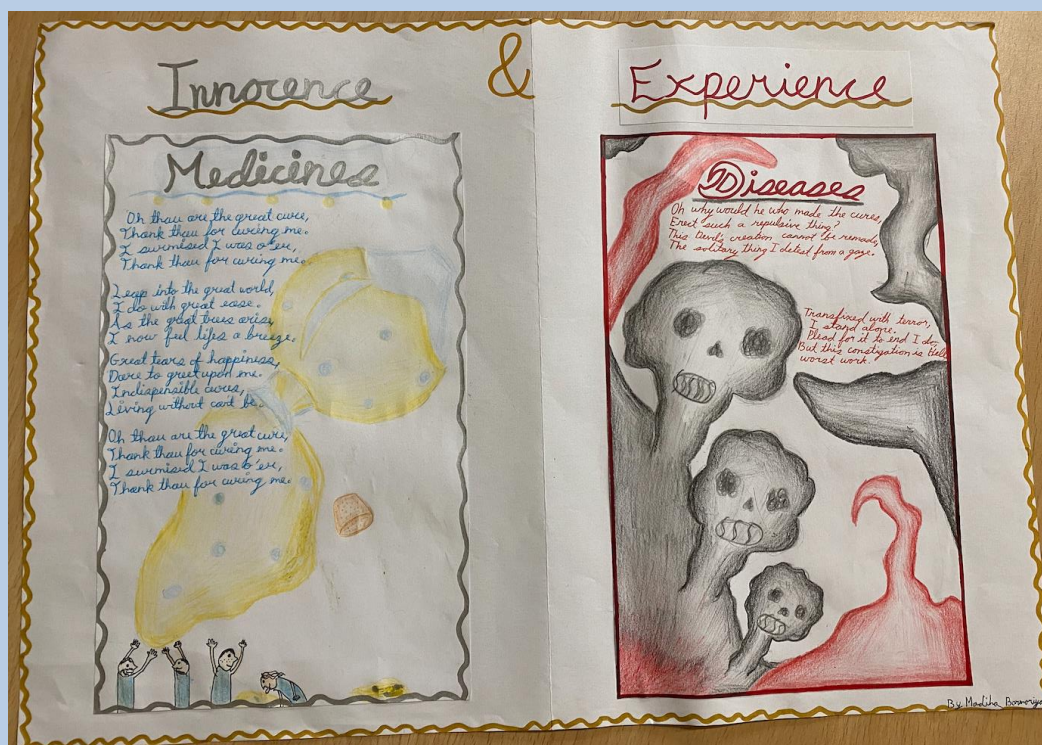 Innocence & Experience
Medicines
Oh thau are the great cure,
Thank thau for curing me.
I surmised I was o'er,
Thank thau for curing me.
Leap into the great world,
I do with great ease.
As the great trees arise,
I now feel lifes a breeze.
Great tears of happiness,
Dare to greet upon me.
Indispensible cures,
Living without cant be.
Oh thau are the great cure,
Thank thau for curing me.
I surmised I was o'er,
Thank thau for curing me.
Diseases
Oh why would he who made the cures,
Erect such a repulsive thing?
This Devil's creation cannot be remade,
The solitary thing I detest from a gaze.
Transfixed with terror,
I stand alone.
Plead for it to end I do,
But this constigation is Hell
worst work.
By Madiha